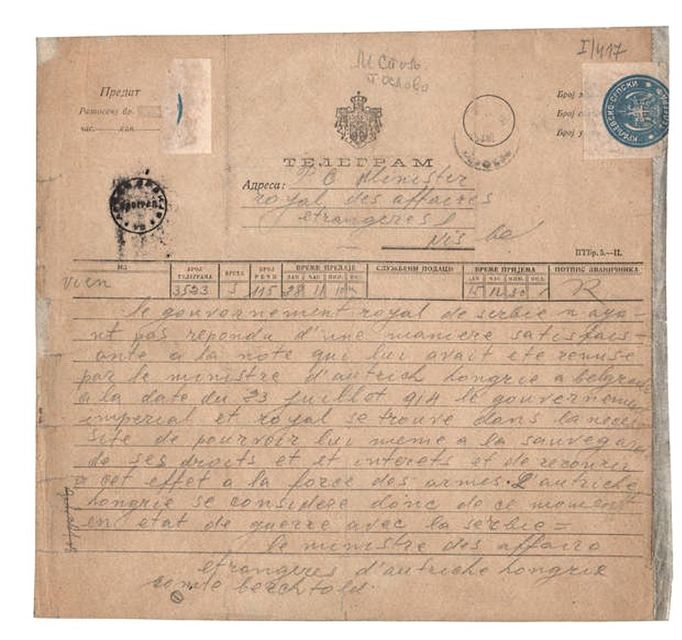 I/417
М Стол.
Послова
Предат
час.
Број
Број
Број
КРАЉЕВСКО-СРПСКИ
ТЕЛЕГРАМ
Адреса: P O Minister
royal des affaires
etrangeres
Nis
ПТБр. 5.—II.
ИЗ БРОЈ ТЕЛЕГРАМА ВРСТА БРОЈ РЕЧИ ВРЕМЕ ПРЕДАЈЕ СЛУЖБЕНИ ПОДАЦИ ВРЕМЕ ПРИЈЕМА ПОТПИС ЗВАНИЧНИКА
ДАН ЧАС ДАН ЧАС
vien 3523 115 28 11 R
le gouvernement royal de serbie n aya-
nt pas repondu d'une maniere satisfais-
ante a la note qui lui avait ete remise
par le ministre d'autrich hongrie a belgrade
a la date du 23 juillot 914 le gouvernement
imperial et royal se trouve dans la neces-
site de pourvoir lui meme a la sauvegarde
de ses droits et et interets et de recourir
a cet effet a la force des armes. L'autriche
hongrie se considere donc de ce moment
en etat de guerre avec la serbie =
le ministre des affaire
etrangeres d'autriche hongrie
comte berchtold.